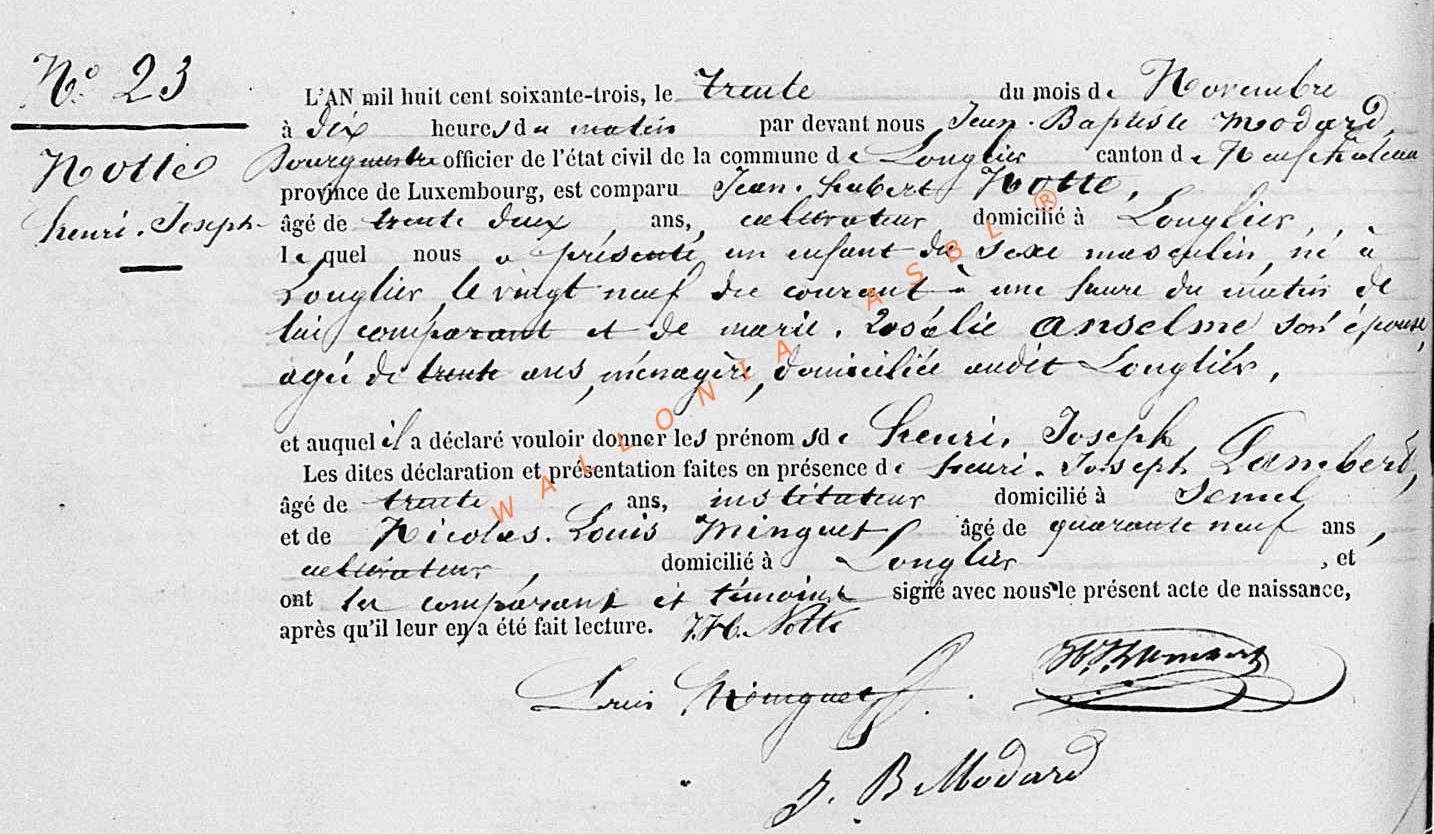 N° 23
L'AN mil huit cent soixante-trois, le trente du mois de Novembre
à dix heures du matin par devant nous Jean-Baptiste Modard,
Notte
Bourgmestre officier de l'état civil de la commune de Longlier canton de Neufchateau
province de Luxembourg, est comparu Jean-hubert Notte,
henri-Joseph
âgé de trente deux ans, cultivateur domicilié à Longlier,
lequel nous a présenté un enfant du sexe masculin, né à
Longlier, le vingt neuf du courant à une heure du matin de
lui comparant et de marie-Rosélie Anselme son épouse,
agée de trente ans, ménagère, domiciliée audit Longlier,
et auquel il a déclaré vouloir donner les prénoms de henri-Joseph
Les dites déclaration et présentation faites en présence de henri-Joseph Lambert,
âgé de trente ans, instituteur domicilié à Semel
et de Nicolas-Louis Minguet âgé de quarante neuf ans,
cultivateur, domicilié à Longlier, et
ont les comparant et témoins signé avec nous le présent acte de naissance,
après qu'il leur en a été fait lecture. J.H. Notte
Louis Minguet
J. B Modard
WALLONIA ASBL ®